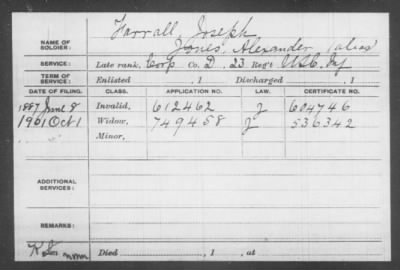 NAME OF SOLDIER: Farrall, Joseph
Jones, Alexander (alias)
SERVICE: Late rank, Corp Co. D. 23 Reg't U.S.C. Inf
TERM OF SERVICE: Enlisted , 1 Discharged , 1
DATE OF FILING. CLASS. APPLICATION NO. LAW. CERTIFICATE NO.
1887 June 8 Invalid, 612462 J 604746
1901 Oct 1 Widow, 749458 J 536342
Minor,
ADDITIONAL SERVICES:
REMARKS:
Died , 1 , at